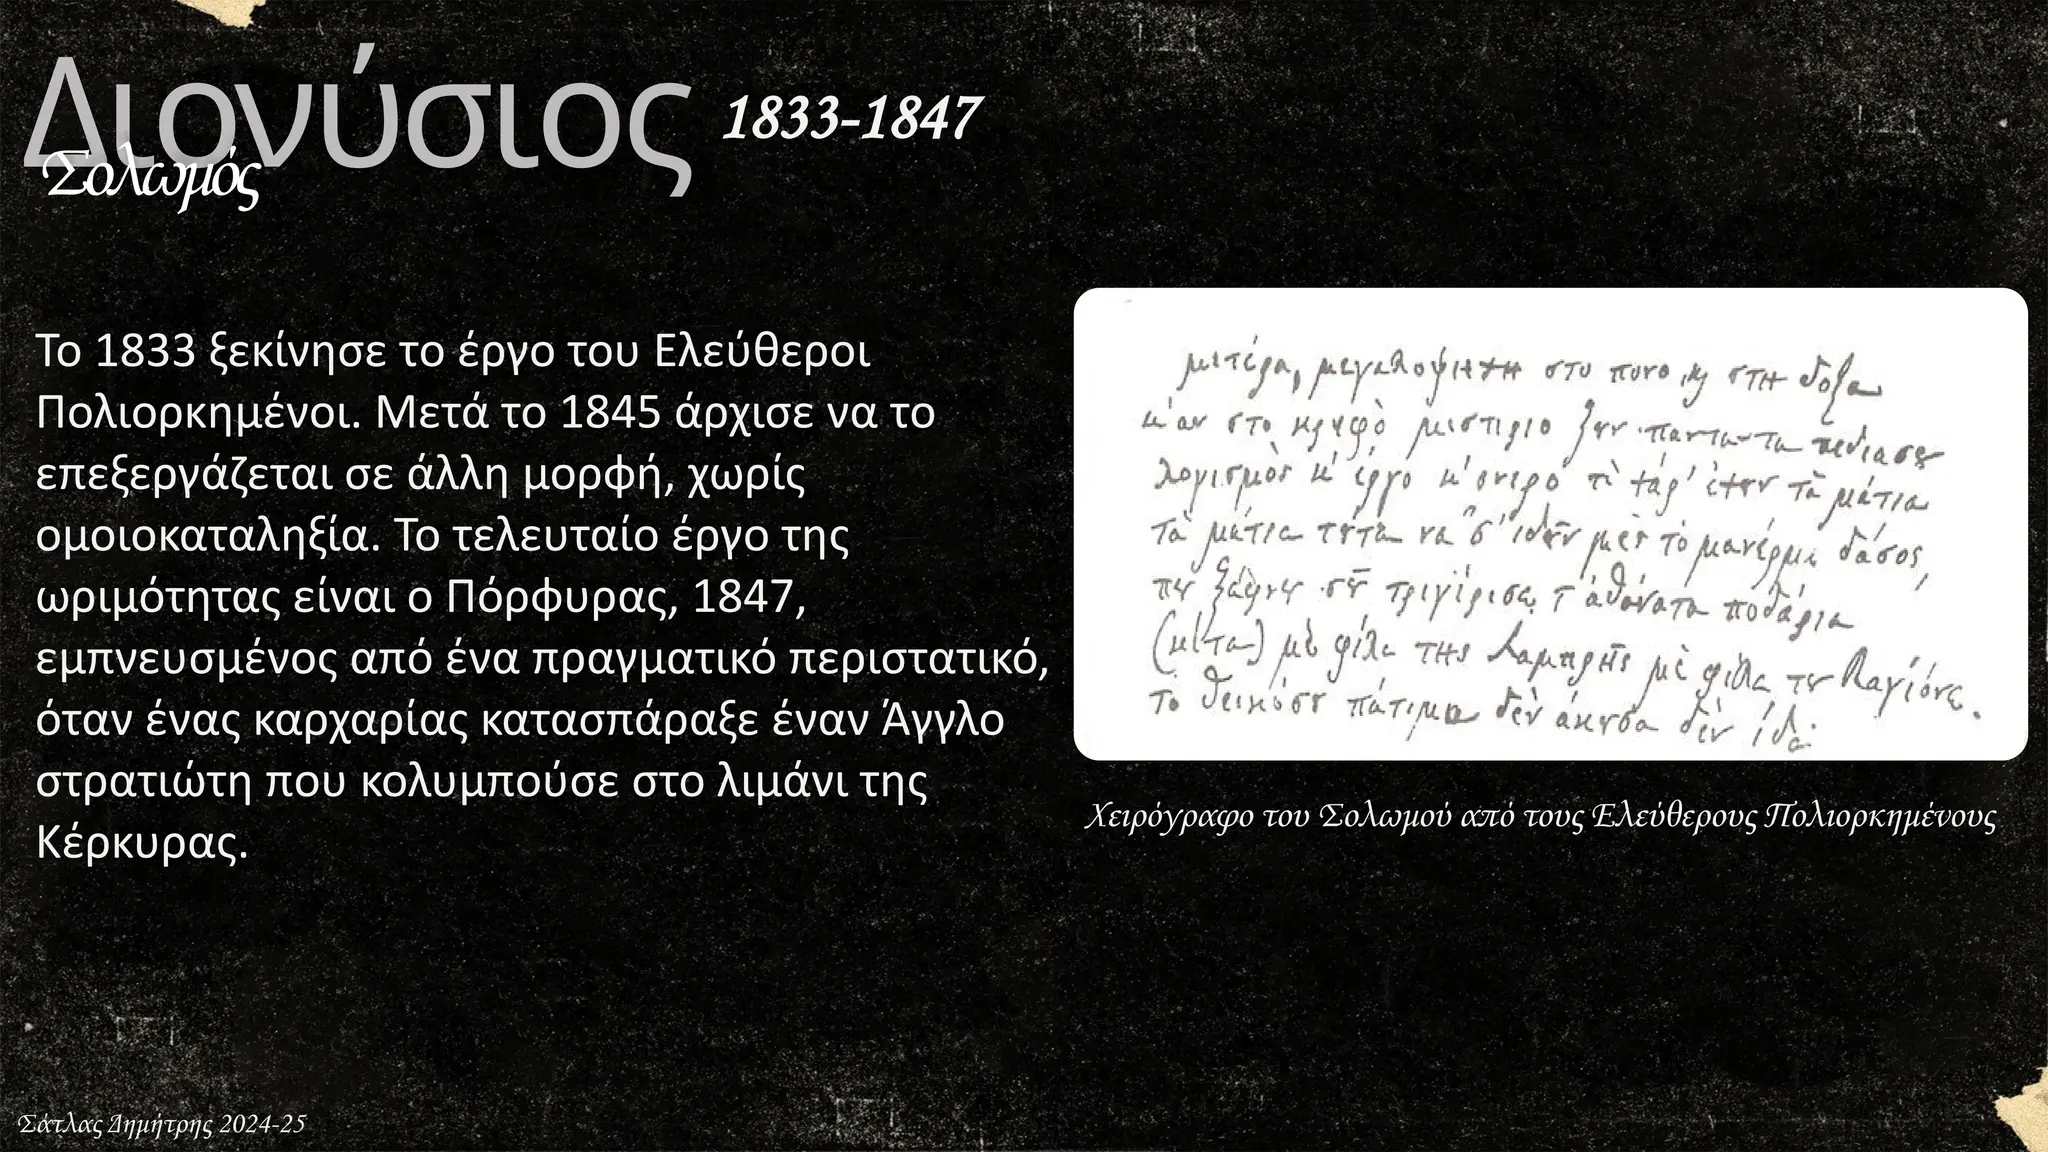 Διονύσιος
Σολωμός
1833-1847
Το 1833 ξεκίνησε το έργο του Ελεύθεροι
Πολιορκημένοι. Μετά το 1845 άρχισε να το
επεξεργάζεται σε άλλη μορφή, χωρίς
ομοιοκαταληξία. Το τελευταίο έργο της
ωριμότητας είναι ο Πόρφυρας, 1847,
εμπνευσμένος από ένα πραγματικό περιστατικό,
όταν ένας καρχαρίας κατασπάραξε έναν Άγγλο
στρατιώτη που κολυμπούσε στο λιμάνι της
Κέρκυρας.
μητέρα, μεγαλοψηχη στο πονο κ στη δοξα
κ' αν στο κρυφὸ μιστιριο ζουν παντα
λογισμὸς κ' έργο κ' ονειρο τὶ χάρ' έχουν τὰ μάτια
τὰ μάτια τουτα να σ' ιδουν μὲς τὸ δάσος,
που ξάφνου σου τριγίρισε τ' ἀθάνατα ποδάρια
(κίτα) μὲ φίλα της Λαμπρῆς μὲ φίλα του Βαγιόνε.
το θεικόσου πάτιμα δὲν άκουσα δὲν ίδα.
Χειρόγραφο του Σολωμού από τους Ελεύθερους Πολιορκημένους
Σάτλας Δημήτρης 2024-25